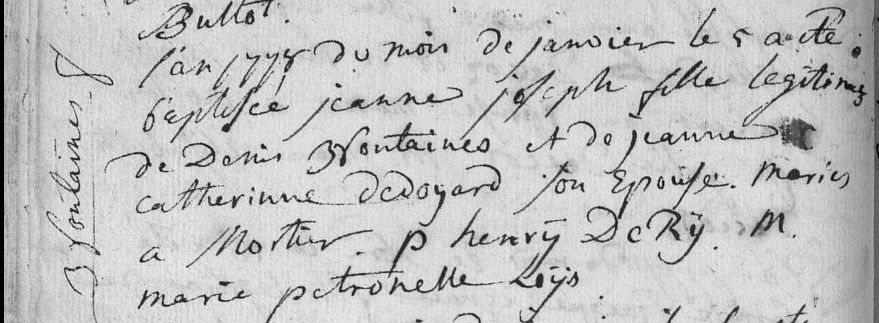 Bultot.
l'an 1778 du mois de janvier le 5 a eté
baptisée jeanne joseph fille legitime
de Denis 3fontaines et de jeanne
catherinne dedoyard son Epouse. maries
a Mortier. p henrÿ DeRÿ. M.
marie petronelle Loÿs
3 fontaines